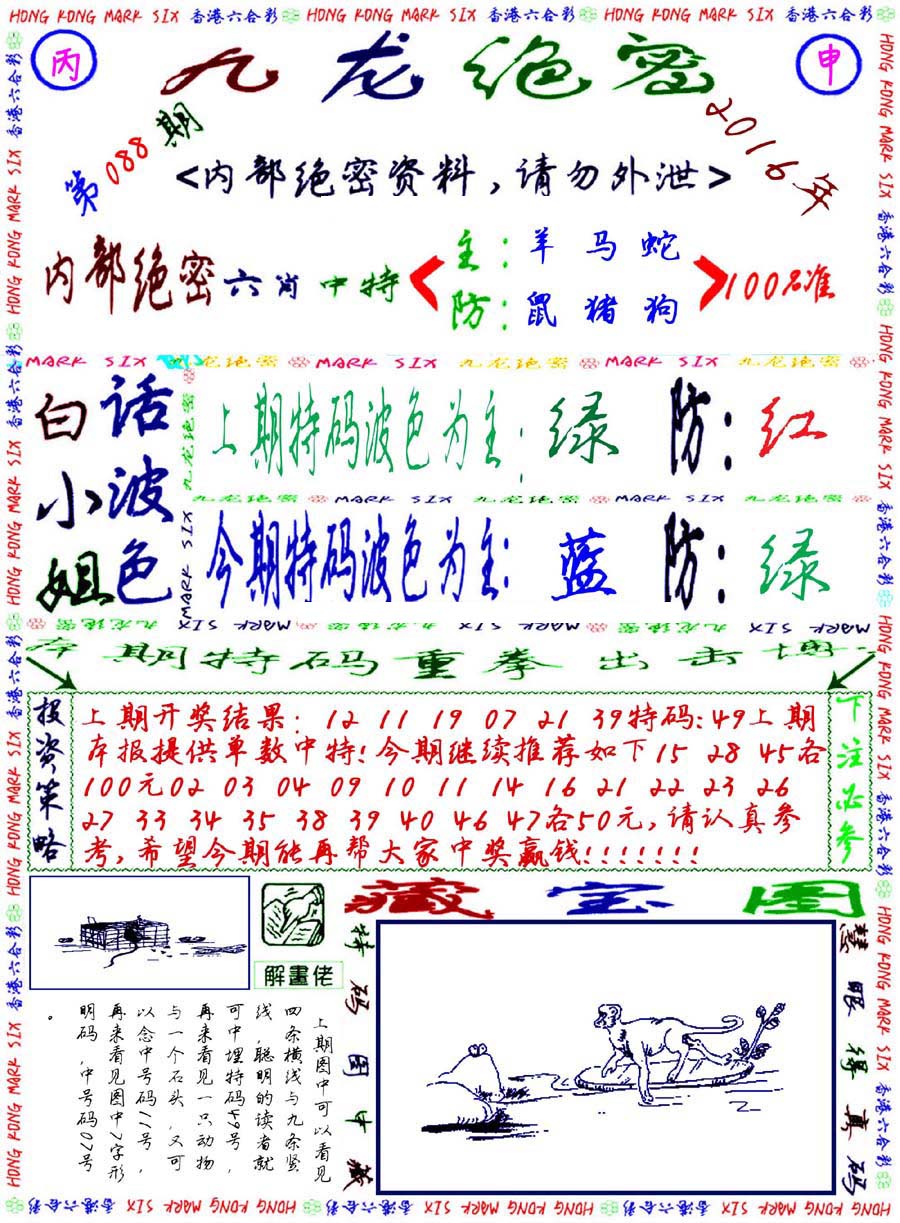 HONG KONG MARK SIX 香港六合彩 HONG KONG MARK SIX 香港六合彩 HONG KONG MARK SIX 香港六合彩
丙
九龙绝密
申
第088期
2016年
<内部绝密资料,请勿外泄>
内部绝密六肖中特
主:羊马蛇
防:鼠猪狗
100%准
MARK SIX 九龙绝密 MARK SIX 九龙绝密 MARK SIX 九龙绝密
白小姐
话波色
上期特码波色为主:绿 防:红
九龙绝密 MARK SIX 九龙绝密 MARK SIX 九龙绝密
今期特码波色为主:蓝 防:绿
本期特码重拳出击博
投资策略
上期开奖结果: 12 11 19 07 21 39特码:49上期
本报提供单数中特!今期继续推荐如下15 28 45各
100元02 03 04 09 10 11 14 16 21 22 23 26
27 33 34 35 38 39 40 46 47各50元,请认真参
考,希望今期能再帮大家中奖赢钱!!!!!!!
下注必参
解畫佬
藏宝图
特码图中藏
慧眼得真码
上期图中可以看见
四条横线与九条竖
线,聪明的读者就
可中埋特码49号,
再来看见一只动物
与一个石头,又可
以念中号码11号,
再来看见图中7字形
明码,中号码07号
。
HONG KONG MARK SIX 香港六合彩 HONG KONG MARK SIX 香港六合彩 HONG KONG MARK SIX 香港六合彩